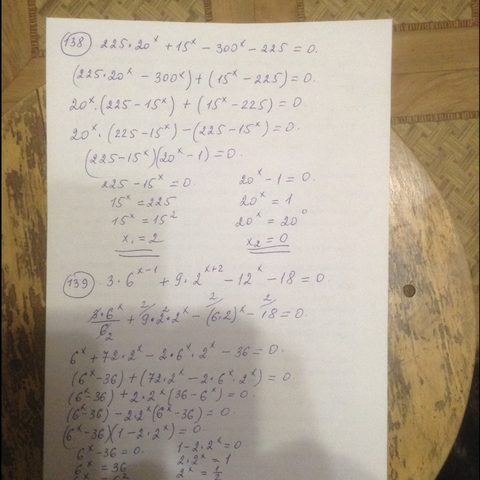 138 225·20^x + 15^x − 300^x − 225 = 0.
(225·20^x − 300^x) + (15^x − 225) = 0.
20^x·(225 − 15^x) + (15^x − 225) = 0.
20^x·(225 − 15^x) − (225 − 15^x) = 0.
(225 − 15^x)(20^x − 1) = 0.
225 − 15^x = 0 20^x − 1 = 0.
15^x = 225 20^x = 1
15^x = 15^2 20^x = 20^0
x₁ = 2 x₂ = 0
139 3·6^(x−1) + 9·2^(x+2) − 12^x − 18 = 0
3·6^x/6₂ + 9·2^2·2^x − (6·2)^x − 18 = 0. 2 2 2
6^x + 72·2^x − 2·6^x·2^x − 36 = 0.
(6^x − 36) + (72·2^x − 2·6^x·2^x) = 0.
(6^x − 36) + 2·2^x(36 − 6^x) = 0.
(6^x − 36) − 2·2^x(6^x − 36) = 0
(6^x − 36)(1 − 2·2^x) = 0.
6^x − 36 = 0. 1 − 2·2^x = 0
6^x = 36 2·2^x = 1
2^x = 1/2